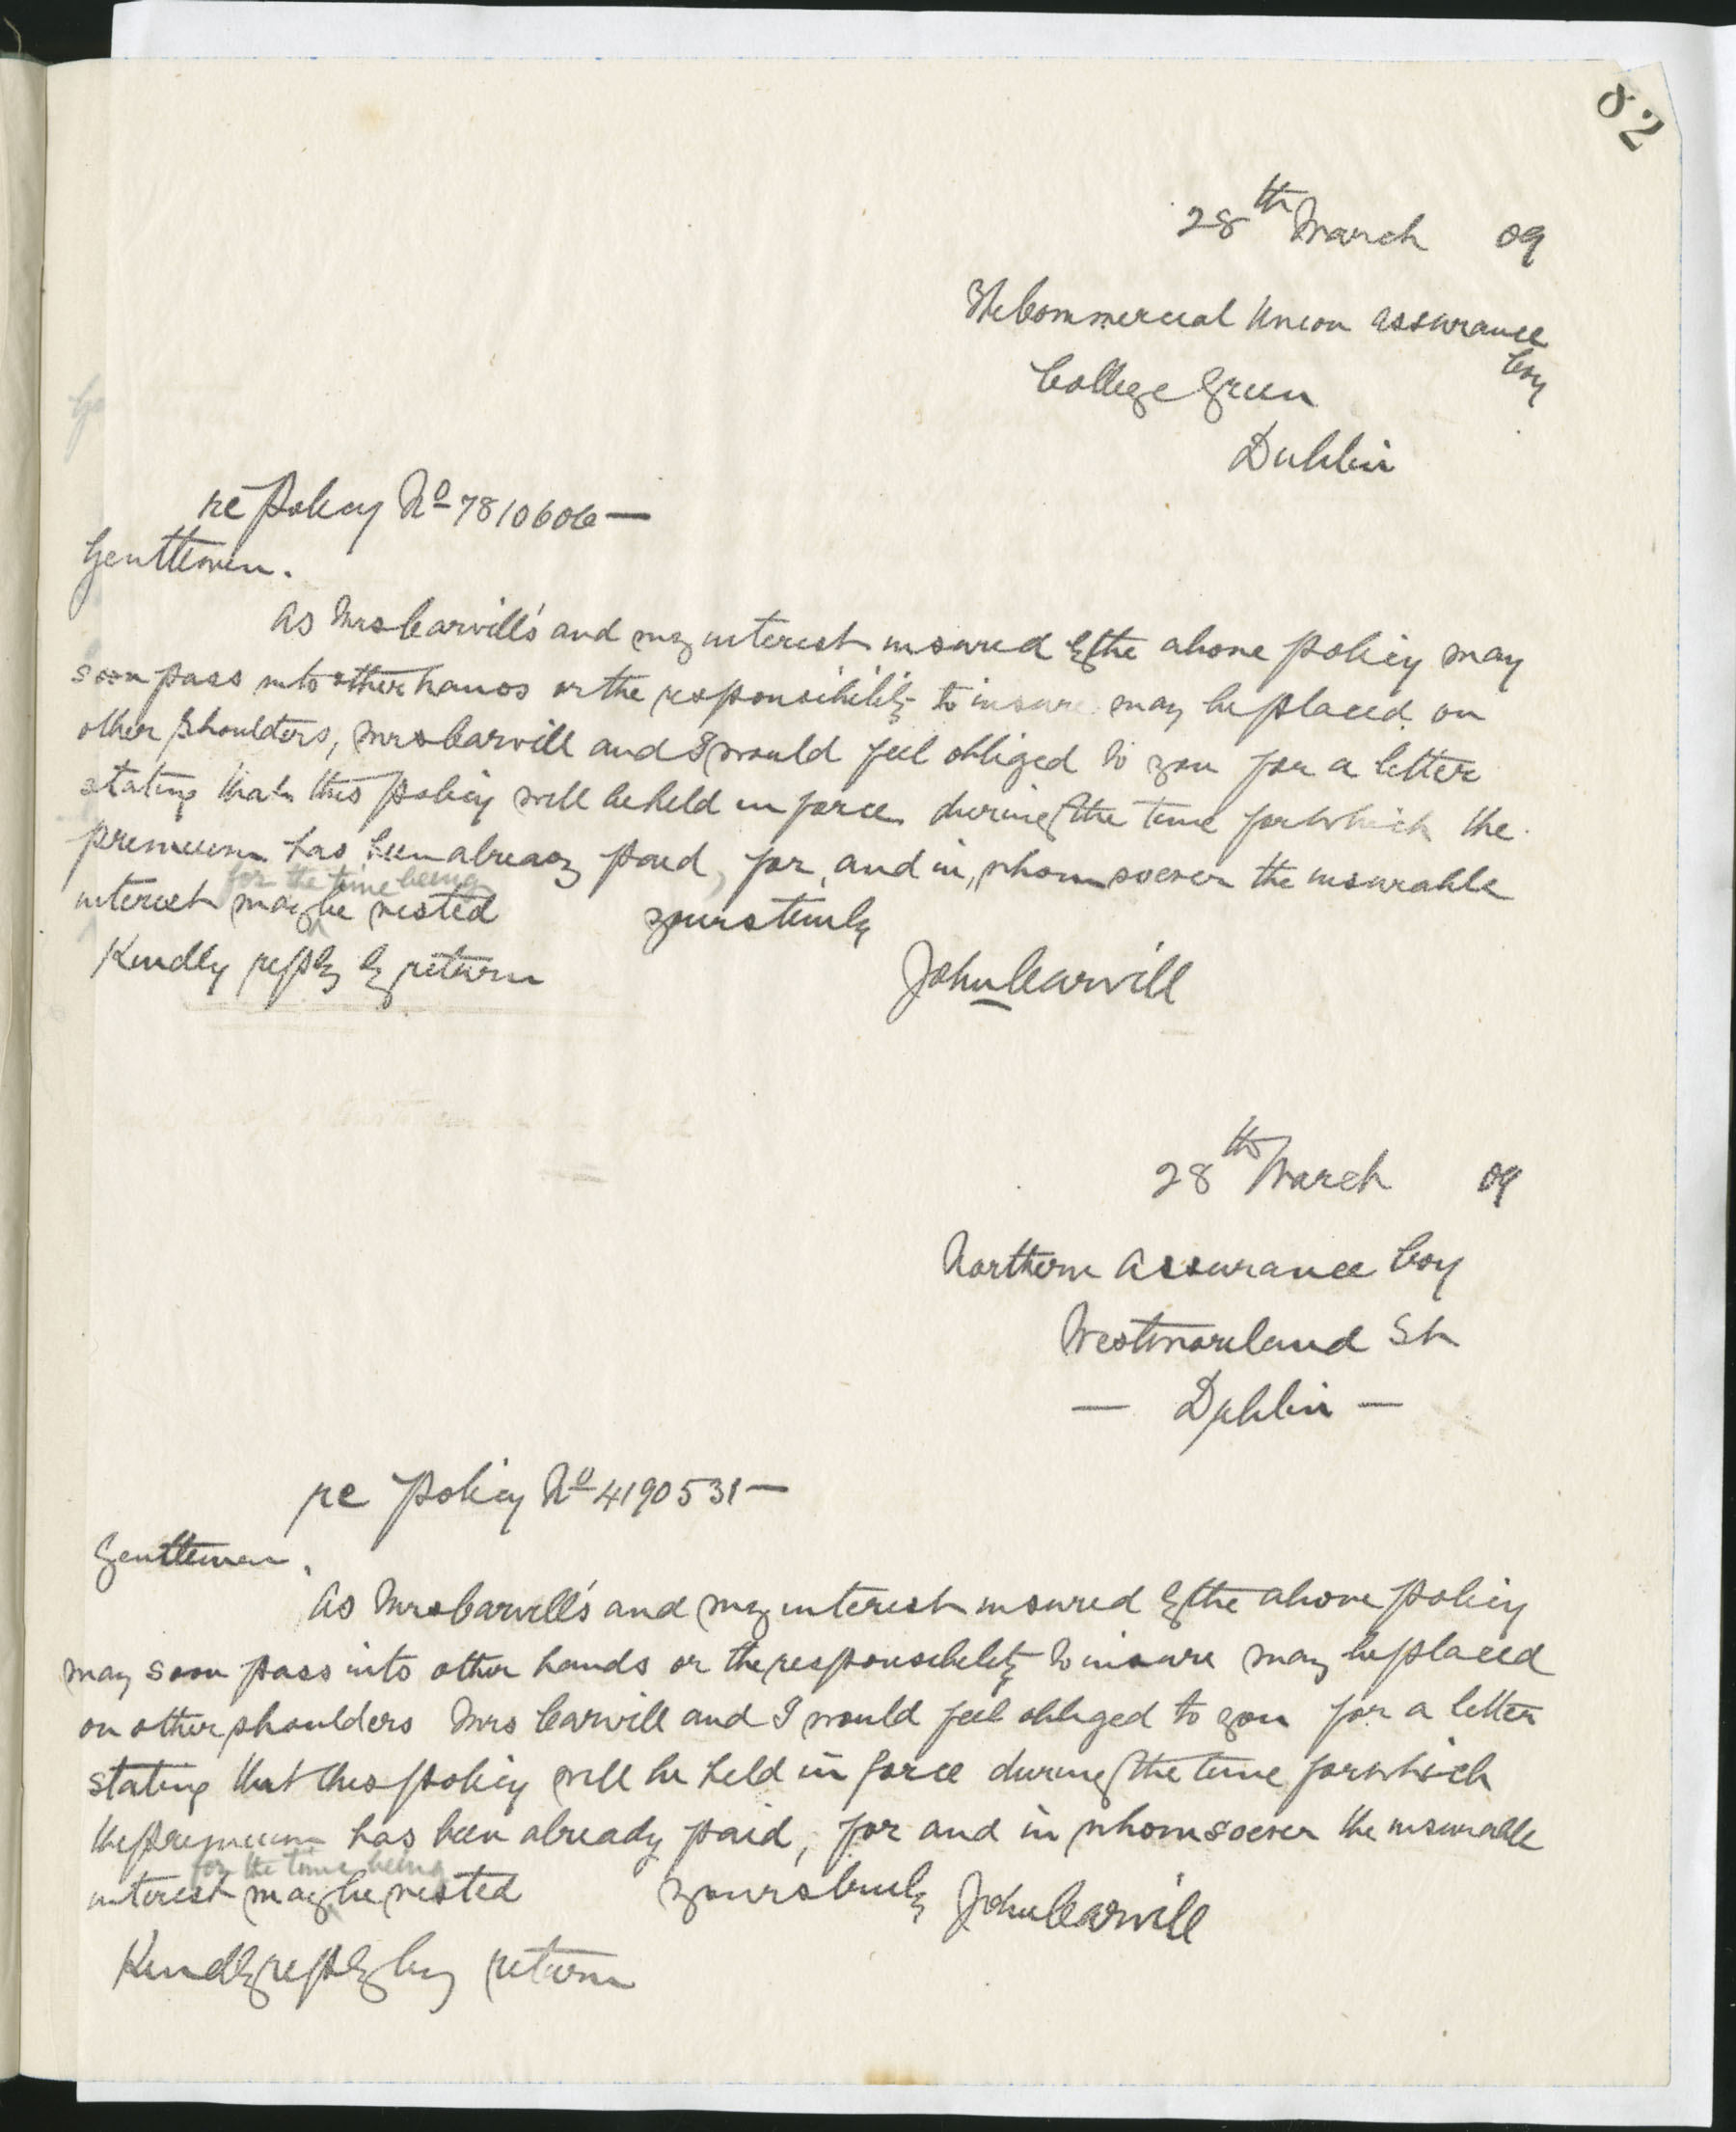 82
28th March 09
The Commercial Union Assurance
Coy
College Green
Dublin
re Policy No 7810606 —
Gentlemen.
As Mrs Carvill's and my interest insured by the above policy may
soon pass into other hands or the responsibility to insure may be placed on
other shoulders, Mrs Carvill and I would feel obliged to you for a letter
stating that this policy will be held in force during the time for which the
premium has been already paid, for, and in, whomsoever the insurable
for the time being
interest may be vested yours truly
Kindly reply by return John Carvill
28th March 09
Northern Assurance Coy
Westmoreland St
— Dublin —
re Policy No 4190531 —
Gentlemen,
As Mrs Carvill's and my interest insured by the above policy
may soon pass into other hands or the responsibility to insure may be placed
on other shoulders Mrs Carvill and I would feel obliged to you for a letter
stating that this policy will be held in force during the time for which
the premium has been already paid, for and in whomsoever the insurable
for the time being
interest may be vested yours truly John Carvill
Kindly reply by return